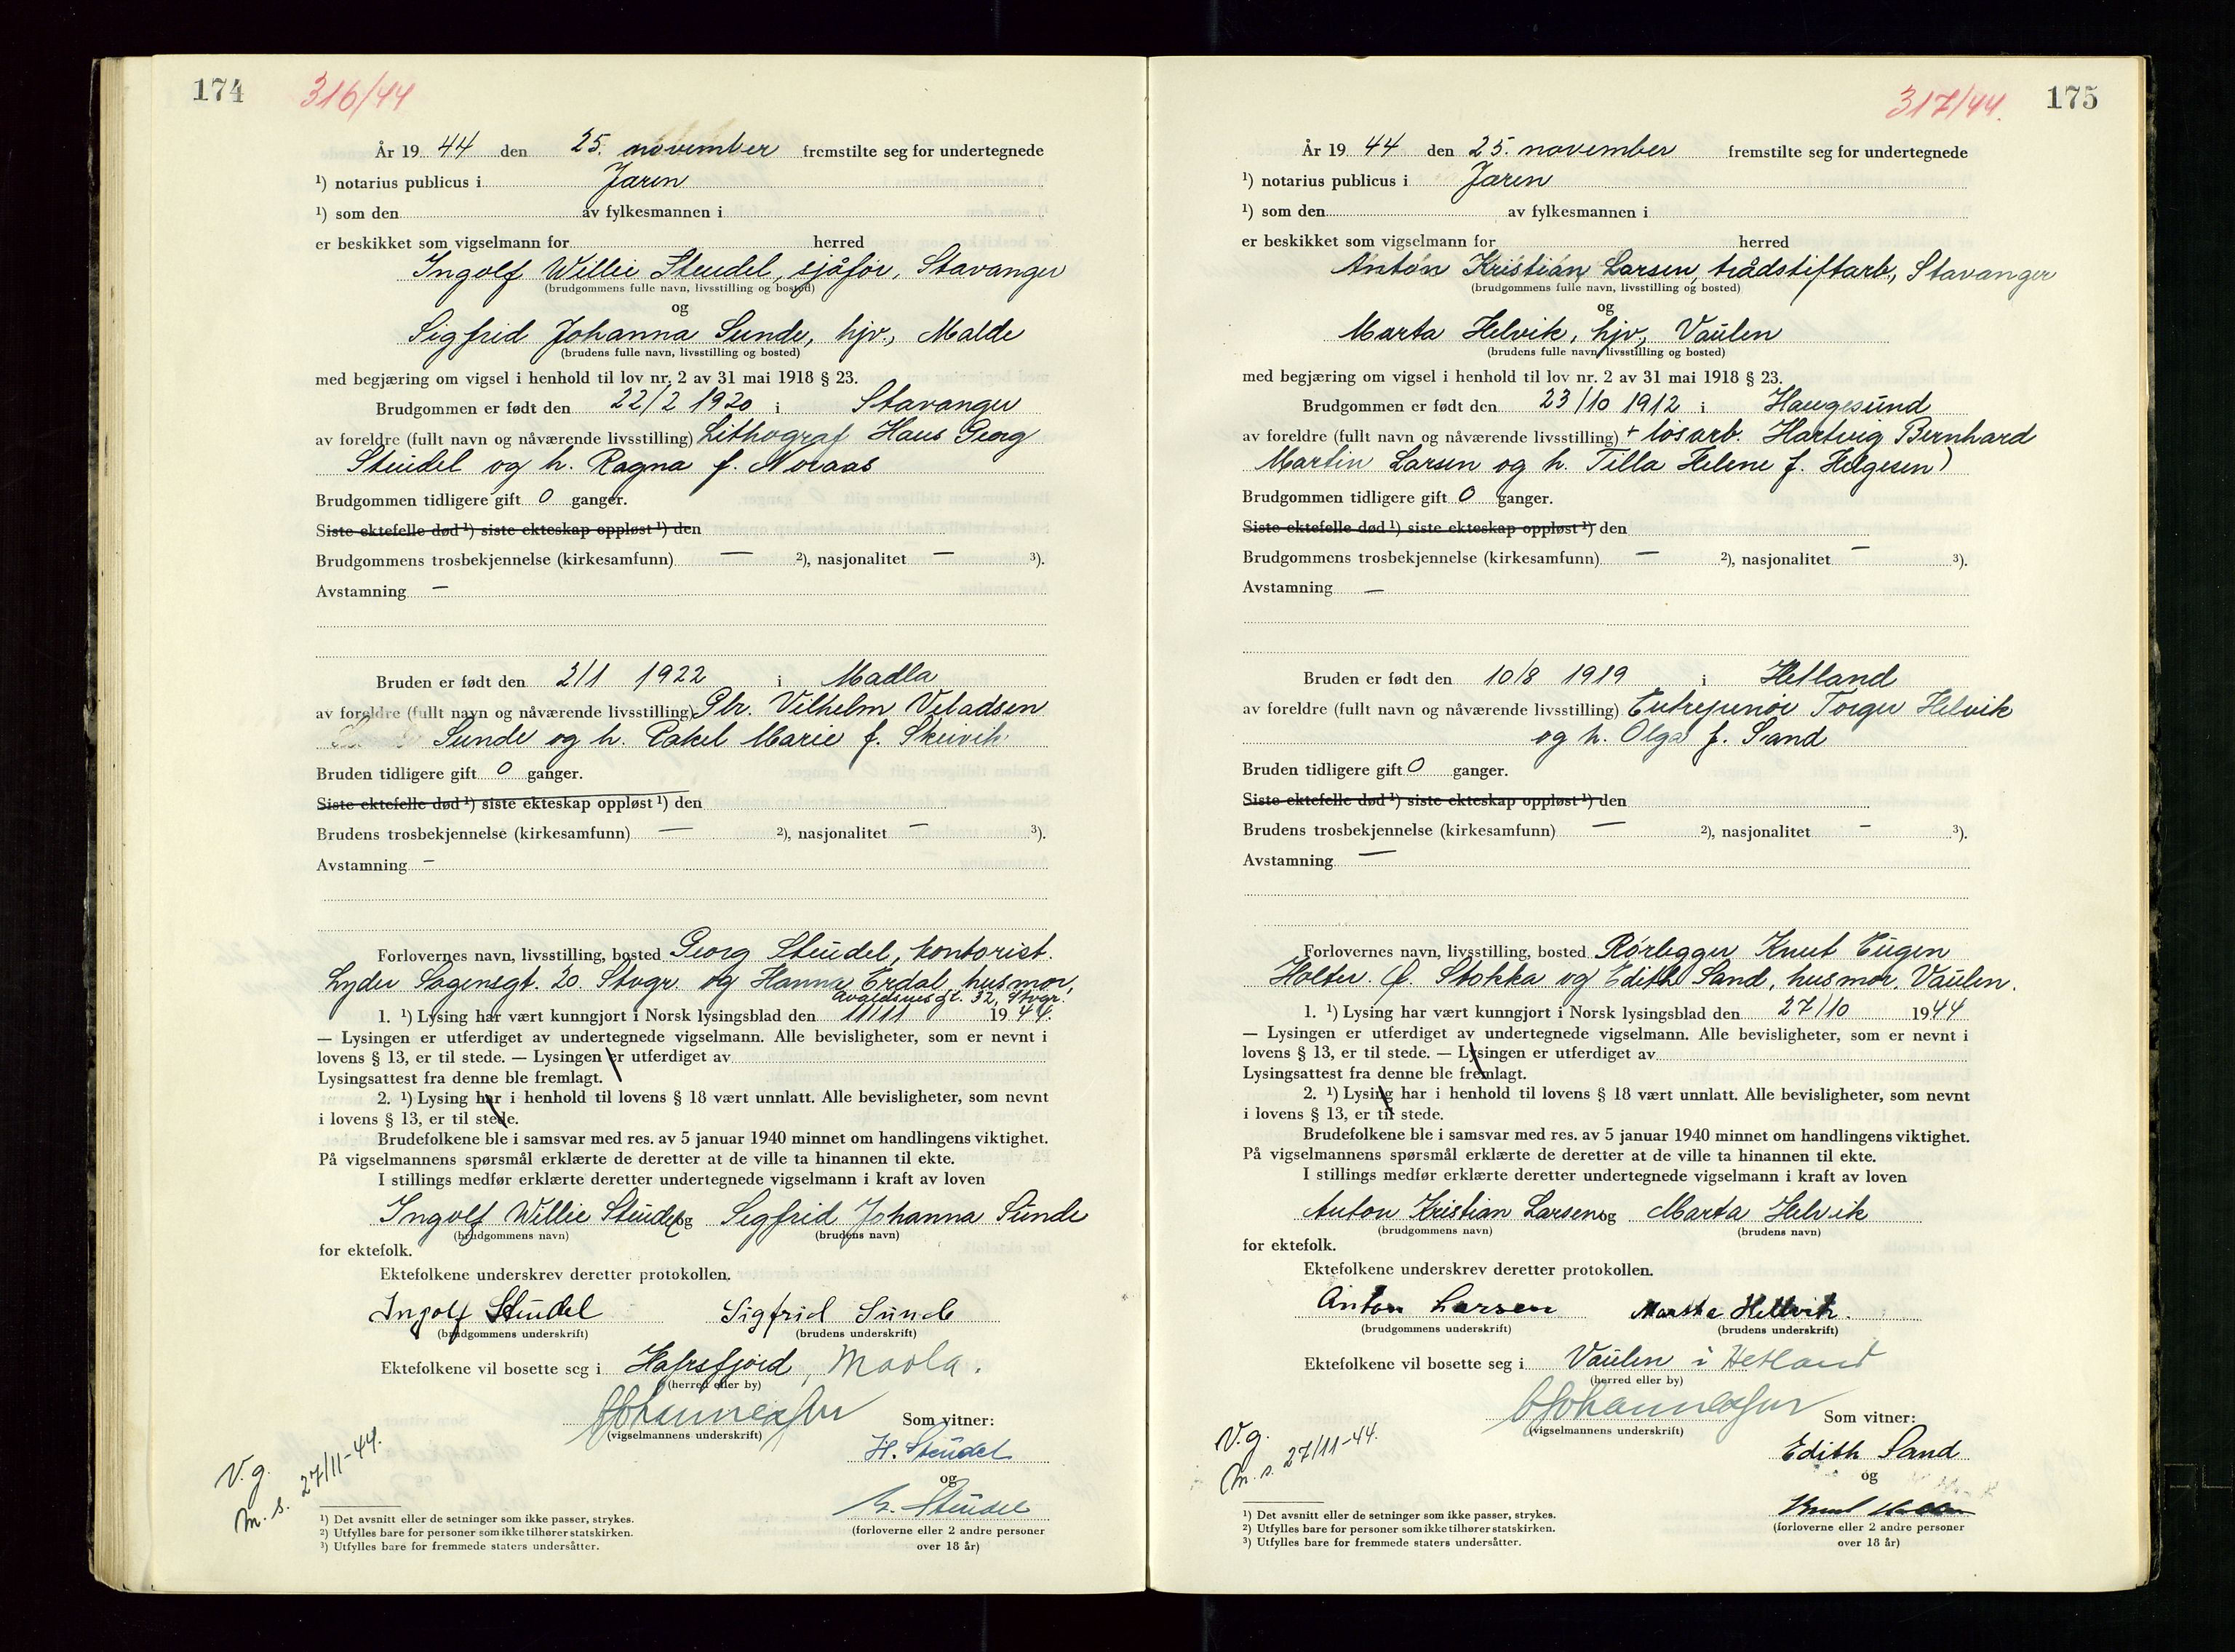 174 316/44
År 19 44 den 25. november fremstilte seg for undertegnede
¹) notarius publicus i Jæren
¹) som den av fylkesmannen i
er beskikket som vigselmann for herred
Ingolf Willie Steudel, sjåfør, Stavanger
(brudgommens fulle navn, livsstilling og bosted)
og
Sigfrid Johanna Sunde, hjv., Malde
(brudens fulle navn, livsstilling og bosted)
med begjæring om vigsel i henhold til lov nr. 2 av 31 mai 1918 § 23.
Brudgommen er født den 22/2 1920 i Stavanger
av foreldre (fullt navn og nåværende livsstilling) Lithograf Hans Georg
Steudel og h. Ragna f. Noraas
Brudgommen tidligere gift 0 ganger.
Siste ektefelle død ¹) siste ekteskap oppløst ¹) den
Brudgommens trosbekjennelse (kirkesamfunn) — ²), nasjonalitet — ³).
Avstamning —
Bruden er født den 2/1 1922 i Madla
av foreldre (fullt navn og nåværende livsstilling) Gbr. Vilhelm Veladsen
Sunde og h. Rakel Marie f. Skeivik
Bruden tidligere gift 0 ganger.
Siste ektefelle død ¹) siste ekteskap oppløst ¹) den
Brudens trosbekjennelse (kirkesamfunn) — ²), nasjonalitet — ³).
Avstamning —
Forlovernes navn, livsstilling, bosted Georg Steudel, kontorist.
Lyder Sagensgt. 20. Stvgr. og Hanna Erdal, husmor,
Avaldsnesgt. 32, Stvgr.
1. ¹) Lysing har vært kunngjort i Norsk lysingsblad den 11/11 1944.
— Lysingen er utferdiget av undertegnede vigselmann. Alle bevisligheter, som er nevnt i
lovens § 13, er til stede. — Lysingen er utferdiget av
Lysingsattest fra denne ble fremlagt.
2. ¹) Lysing har i henhold til lovens § 18 vært unnlatt. Alle bevisligheter, som nevnt
i lovens § 13, er til stede.
Brudefolkene ble i samsvar med res. av 5 januar 1940 minnet om handlingens viktighet.
På vigselmannens spørsmål erklærte de deretter at de ville ta hinannen til ekte.
I stillings medfør erklærte deretter undertegnede vigselmann i kraft av loven
Ingolf Willie Steudel og Sigfrid Johanna Sunde
(brudgommens navn) (brudens navn)
for ektefolk.
Ektefolkene underskrev deretter protokollen.
Ingolf Steudel Sigfrid Sunde
(brudgommens underskrift) (brudens underskrift)
Ektefolkene vil bosette seg i Hafrsfjord, Madla.
(herred eller by)
Som vitner:
(vigselmannens underskrift)
H. Steudel
og
G. Steudel
(forloverne eller 2 andre personer
over 18 år)
V.g.
M. s. 27/11-44.
¹) Det avsnitt eller de setninger som ikke passer, strykes.
²) Utfylles bare for personer som ikke tilhører statskirken.
³) Utfylles bare for fremmede staters undersåtter.
317/44. 175
År 19 44 den 25. november fremstilte seg for undertegnede
¹) notarius publicus i Jæren
¹) som den av fylkesmannen i
er beskikket som vigselmann for herred
Anton Kristian Larsen, trådstiftarb., Stavanger
(brudgommens fulle navn, livsstilling og bosted)
og
Marta Helvik, hjv., Vaulen
(brudens fulle navn, livsstilling og bosted)
med begjæring om vigsel i henhold til lov nr. 2 av 31 mai 1918 § 23.
Brudgommen er født den 23/10 1912 i Haugesund
av foreldre (fullt navn og nåværende livsstilling) + løsarb. Hartvig Bernhard
Martin Larsen og h. Tilla Helene f. Helgesen)
Brudgommen tidligere gift 0 ganger.
Siste ektefelle død ¹) siste ekteskap oppløst ¹) den
Brudgommens trosbekjennelse (kirkesamfunn) — ²), nasjonalitet — ³).
Avstamning —
Bruden er født den 10/8 1919 i Hetland
av foreldre (fullt navn og nåværende livsstilling) Entrepenør Torger Helvik
og h. Olga f. Sand
Bruden tidligere gift 0 ganger.
Siste ektefelle død ¹) siste ekteskap oppløst ¹) den
Brudens trosbekjennelse (kirkesamfunn) — ²), nasjonalitet — ³).
Avstamning —
Forlovernes navn, livsstilling, bosted Rørlegger Knut Eugen
Holter. Ø. Stokka og Edith Sand, husmor, Vaulen.
1. ¹) Lysing har vært kunngjort i Norsk lysingsblad den 27/10 1944
— Lysingen er utferdiget av undertegnede vigselmann. Alle bevisligheter, som er nevnt i
lovens § 13, er til stede. — Lysingen er utferdiget av
Lysingsattest fra denne ble fremlagt.
2. ¹) Lysing har i henhold til lovens § 18 vært unnlatt. Alle bevisligheter, som nevnt
i lovens § 13, er til stede.
Brudefolkene ble i samsvar med res. av 5 januar 1940 minnet om handlingens viktighet.
På vigselmannens spørsmål erklærte de deretter at de ville ta hinannen til ekte.
I stillings medfør erklærte deretter undertegnede vigselmann i kraft av loven
Anton Kristian Larsen og Marta Helvik
(brudgommens navn) (brudens navn)
for ektefolk.
Ektefolkene underskrev deretter protokollen.
Anton Larsen Martha Hellvik.
(brudgommens underskrift) (brudens underskrift)
Ektefolkene vil bosette seg i Vaulen i Hetland
(herred eller by)
Som vitner:
(vigselmannens underskrift)
Edith Sand
og
(forloverne eller 2 andre personer
over 18 år)
V.g.
M. s. 27/11-44.
¹) Det avsnitt eller de setninger som ikke passer, strykes.
²) Utfylles bare for personer som ikke tilhører statskirken.
³) Utfylles bare for fremmede staters undersåtter.